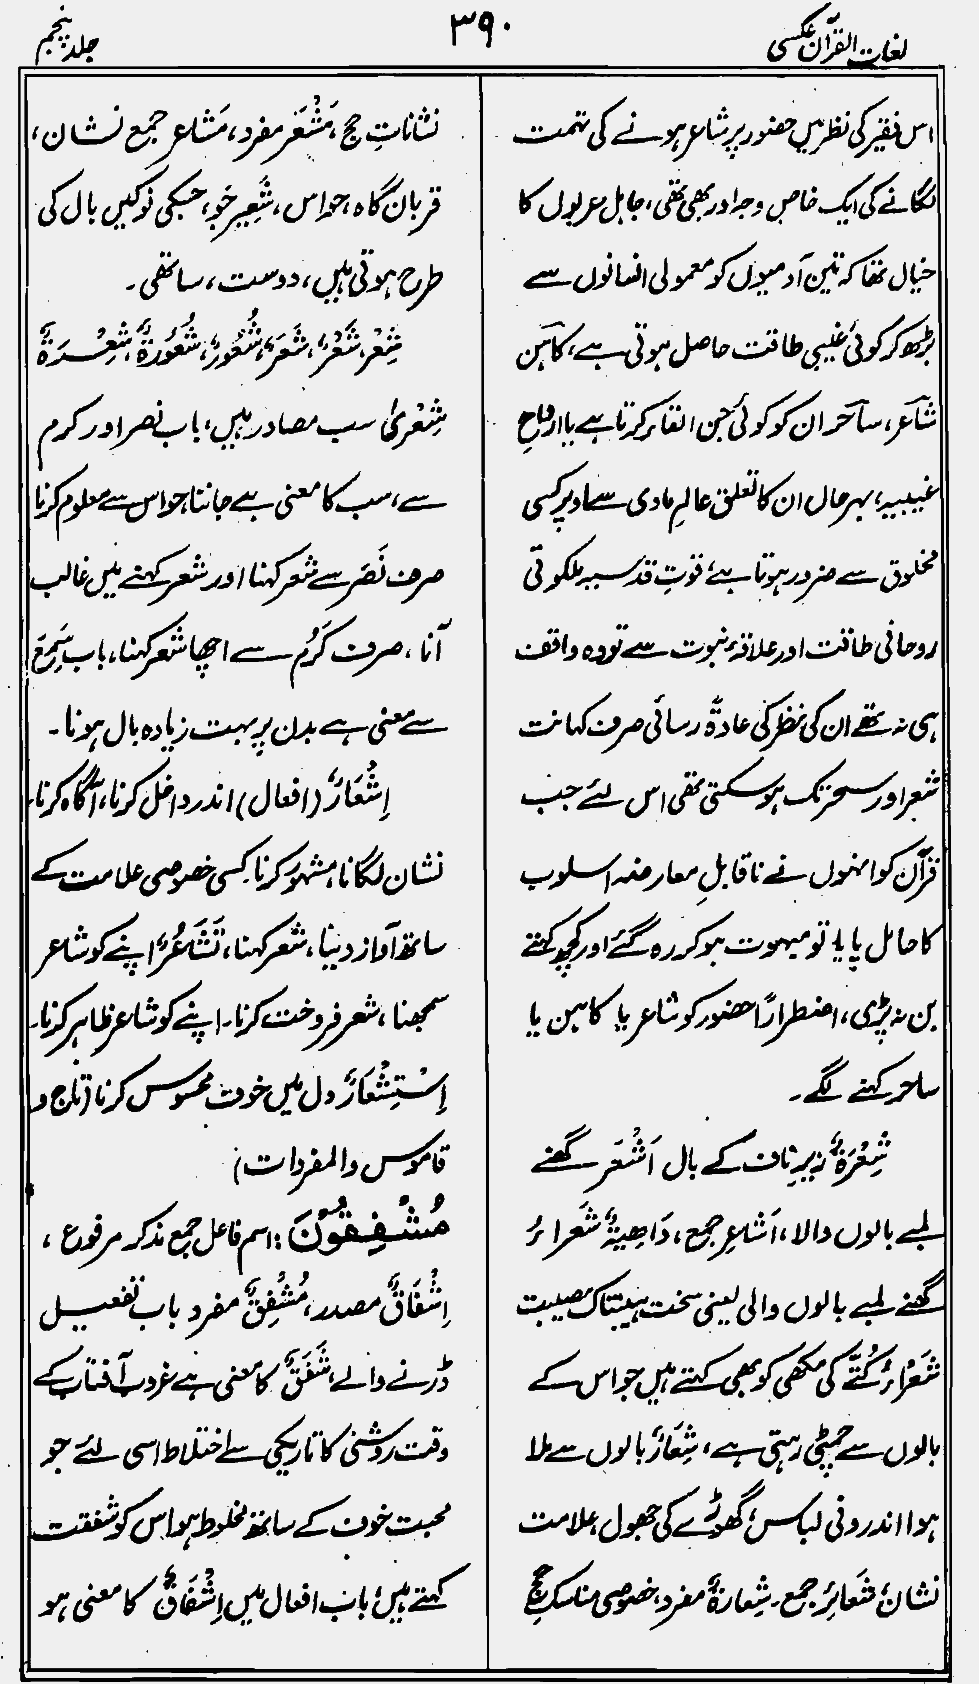 لغات القرآن عکسی
۳۹۰
جلد پنجم
اس فقیر کی نظر میں حضور پر شاعر ہونے کی تہمت
لگانے کی ایک خاص وجہ اور بھی تھی، جاہل عربوں کا
خیال تھا کہ تین آدمیوں کو معمولی انسانوں سے
بڑھ کر کوئی غیبی طاقت حاصل ہوتی ہے، کاہن
شاعر، ساحر ان کو کوئی جن القاء کرتا ہے یا ارواحِ
غیبیہ، بہرحال ان کا تعلق عالمِ مادی سے اوپر کسی
مخلوق سے ضرور ہوتا ہے، قوتِ قدسیہ ملکوتی
روحانی طاقت اور علاقۂ نبوت سے تو وہ واقف
ہی نہ تھے ان کی نظر کی عادۃً رسائی صرف کہانت
شعر اور سحر تک ہو سکتی تھی اس لئے جب
قرآن کو انہوں نے ناقابلِ معارضہ اسلوب
کا حامل پایا تو مبہوت ہو کر رہ گئے اور کچھ کہتے
بن نہ پڑی، اضطراراً حضور کو شاعر یا کاہن یا
ساحر کہنے لگے۔
شِعْرَۃٌ زیرِ ناف کے بال اَشْعَر گھنے
لمبے بالوں والا، اَشَاعِر جمع، دَاھِیَۃٌ شَعْرَاءُ
گھنے لمبے بالوں والی یعنی سخت ہیبتناک مصیبت
شَعْرَاءُ کُتّے کی مکھی کو بھی کہتے ہیں جو اس کے
بالوں سے چمٹی رہتی ہے، شِعَارٌ بالوں سے ملا
ہوا اندرونی لباس، گھوڑے کی جھول، علامت
نشان، شَعَائِر جمع۔ شِعَارَۃٌ مفرد، خصوصی مناسکِ حج
نشاناتِ حج، مَشْعَر مفرد، مَشَاعِر جمع نشان،
قربان گاہ، حواس، شَعِیر جَو، جسکی نوکیں بال کی
طرح ہوتی ہیں، دوست، ساتھی۔
شِعْرٌ، شَعْرٌ، شَعَرٌ، شُعُورٌ، شُعُوْرَۃٌ، شِعْرَۃٌ
شِعْرٰی سب مصادر ہیں، باب نصر اور کرم
سے، سب کا معنی ہے جاننا، حواس سے معلوم کرنا
صرف نَصَرَ سے شعر کہنا اور شعر کہنے میں غالب
آنا، صرف کَرُمَ سے اچھا شعر کہنا، باب سَمِعَ
سے معنی ہے بدن پر بہت زیادہ بال ہونا۔
اِشْعَارٌ (افعال) اندر داخل کرنا، آگاہ کرنا،
نشان لگانا، مشہور کرنا۔ کسی خصوصی علامت کے
ساتھ آواز دینا، شعر کہنا، تَشَاعُرٌ اپنے کو شاعر
سمجھنا، شعر فروخت کرنا۔ اپنے کو شاعر ظاہر کرنا۔
اِسْتِشْعَارٌ دل میں خوف محسوس کرنا (تاج و
قاموس والمفردات)
مُشْفِقُوْنَ: اسم فاعل جمع مذکر مرفوع،
اِشْفَاقٌ مصدر، مُشْفِقٌ مفرد باب تفعیل
ڈرنے والے، شَفَقٌ کا معنی ہے غروبِ آفتاب کے
وقت روشنی کا تاریکی سے اختلاط اسی لئے جو
محبت خوف کے ساتھ مخلوط ہو اس کو شفقت
کہتے ہیں، باب افعال میں اِشْفَاقٌ کا معنی ہو